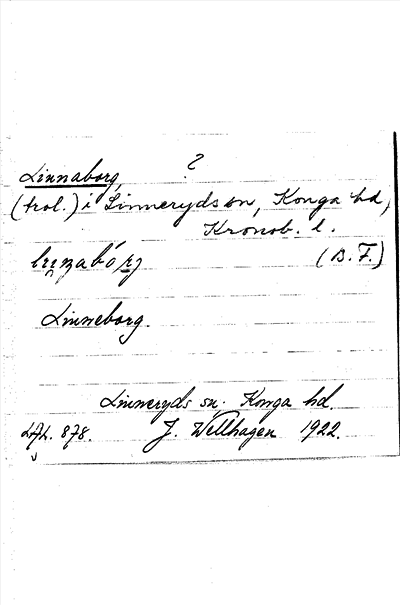 ?
Linnaborg,
(trol.) i Linneryds sn, Konga hd,
Kronob. l.
(B. F.)
Linneborg.
Linneryds sn. Konga hd.
878. J. Wellhagen 1922.